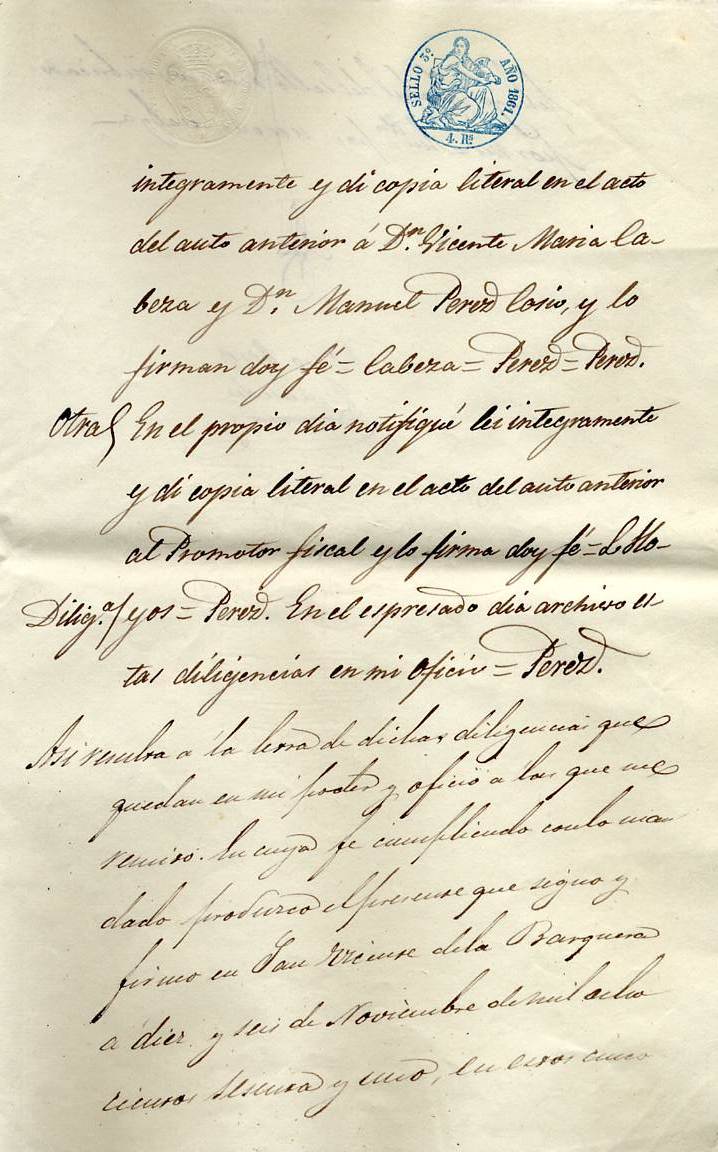 SELLO 3º AÑO 1861.
4. Rs
integramente y di copia literal en el acto
del auto anterior á Dn. Vicente Maria Ca-
beza y Dn. Manuel Perez Cosio, y lo
firman doy fé = Cabeza = Perez = Perez.
Otra En el propio dia notifiqué lei integramente
y di copia literal en el acto del auto anterior
al Promotor fiscal y lo firma doy fé = L. Ho-
Dilig.a / yos = Perez. En el espresado dia archivo es-
tas diligencias en mi oficio = Perez.
Asi resulta a la letra de dichas diligencias que
quedan en mi poder y oficio a las que me
remito. En cuya fe cumpliendo con lo man
dado produzco el presente que signo y
firmo en San Vicente de la Barquera
a diez y seis de Noviembre de mil ocho
cientos sesenta y uno, en estas cinco